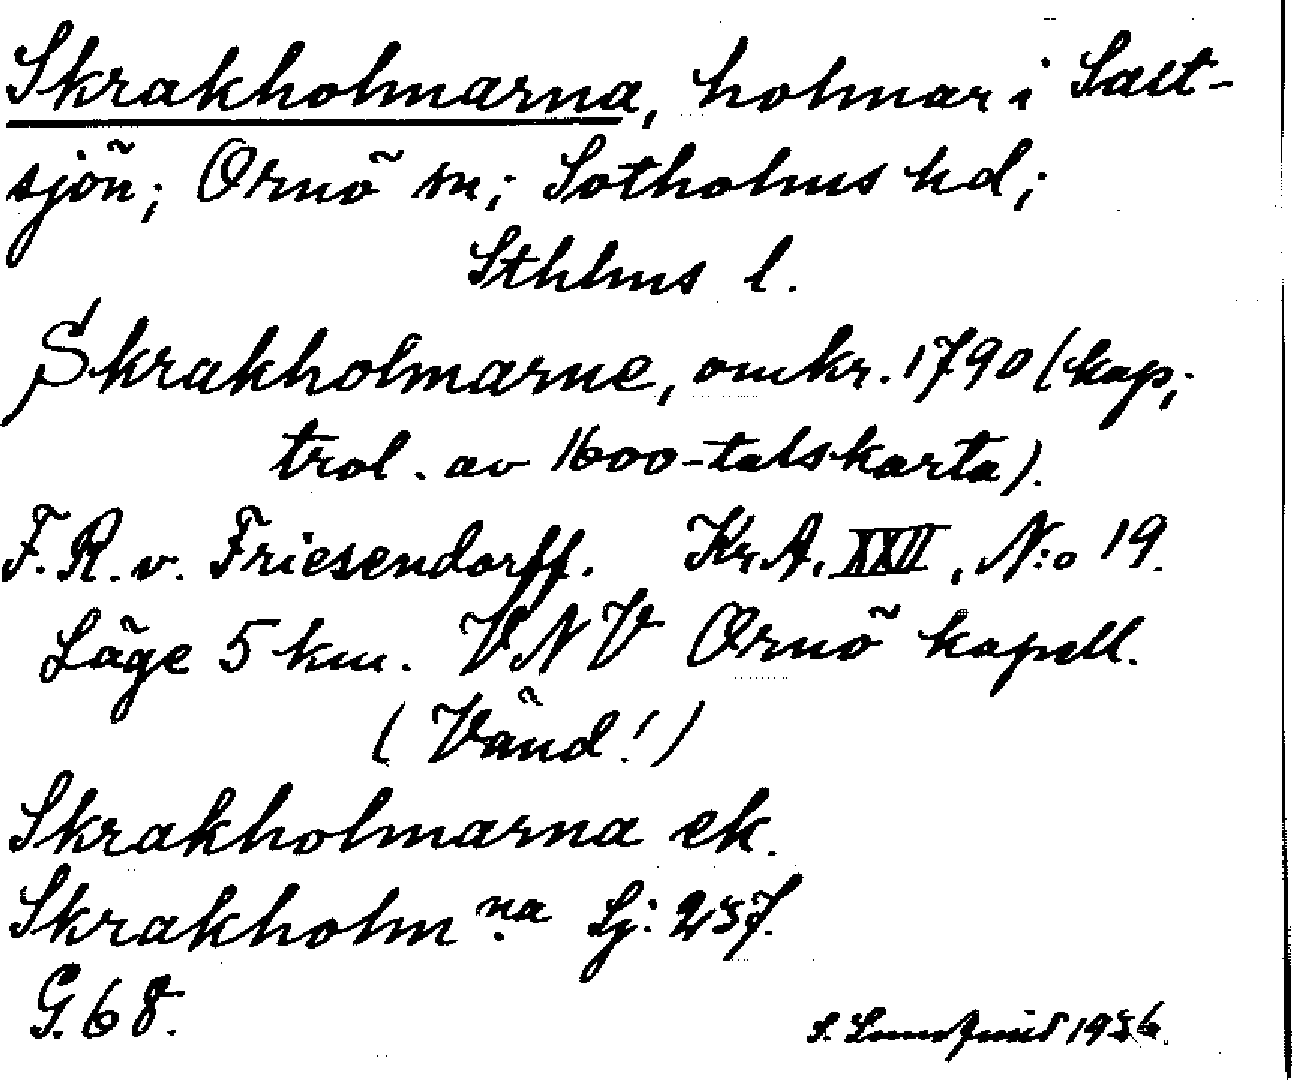 Skrakholmarna, holmar i Salt-
sjön; Ornö sn; Sotholms hd;
Sthlms l.
Skrakholmarne, omkr. 1790 (kop;
trol. av 1600-talskarta).
F.R. v. Friesendorff. Kr.A. XXII, N:o 19.
Läge 5 km. VNV Ornö kapell.
(Vänd!)
Skrakholmarna ek.
Skrakholm:na Sj: 257.
G. 68.
S. Lundqvist 1936.